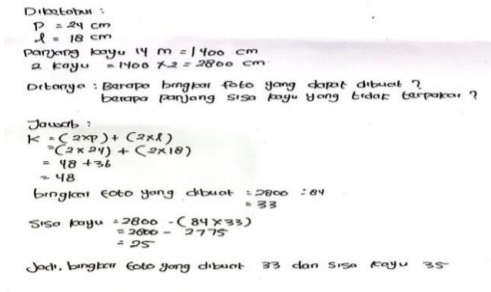 Diketahui :
P = 24 cm
l = 18 cm
Panjang kayu 14 m = 1400 cm
2 kayu = 1400 x 2 = 2800 cm
Ditanya : Berapa bingkai foto yang dapat dibuat ?
berapa panjang sisa kayu yang tidak terpakai ?
Jawab :
K = (2xp) + (2xl)
= (2 x 24) + (2x18)
= 48 + 36
= 48
bingkai foto yang dibuat = 2800 : 84
= 33
Sisa kayu = 2800 - (84 x 33)
= 2800 - 2775
= 25
Jadi, bingkai foto yang dibuat 33 dan sisa kayu 35